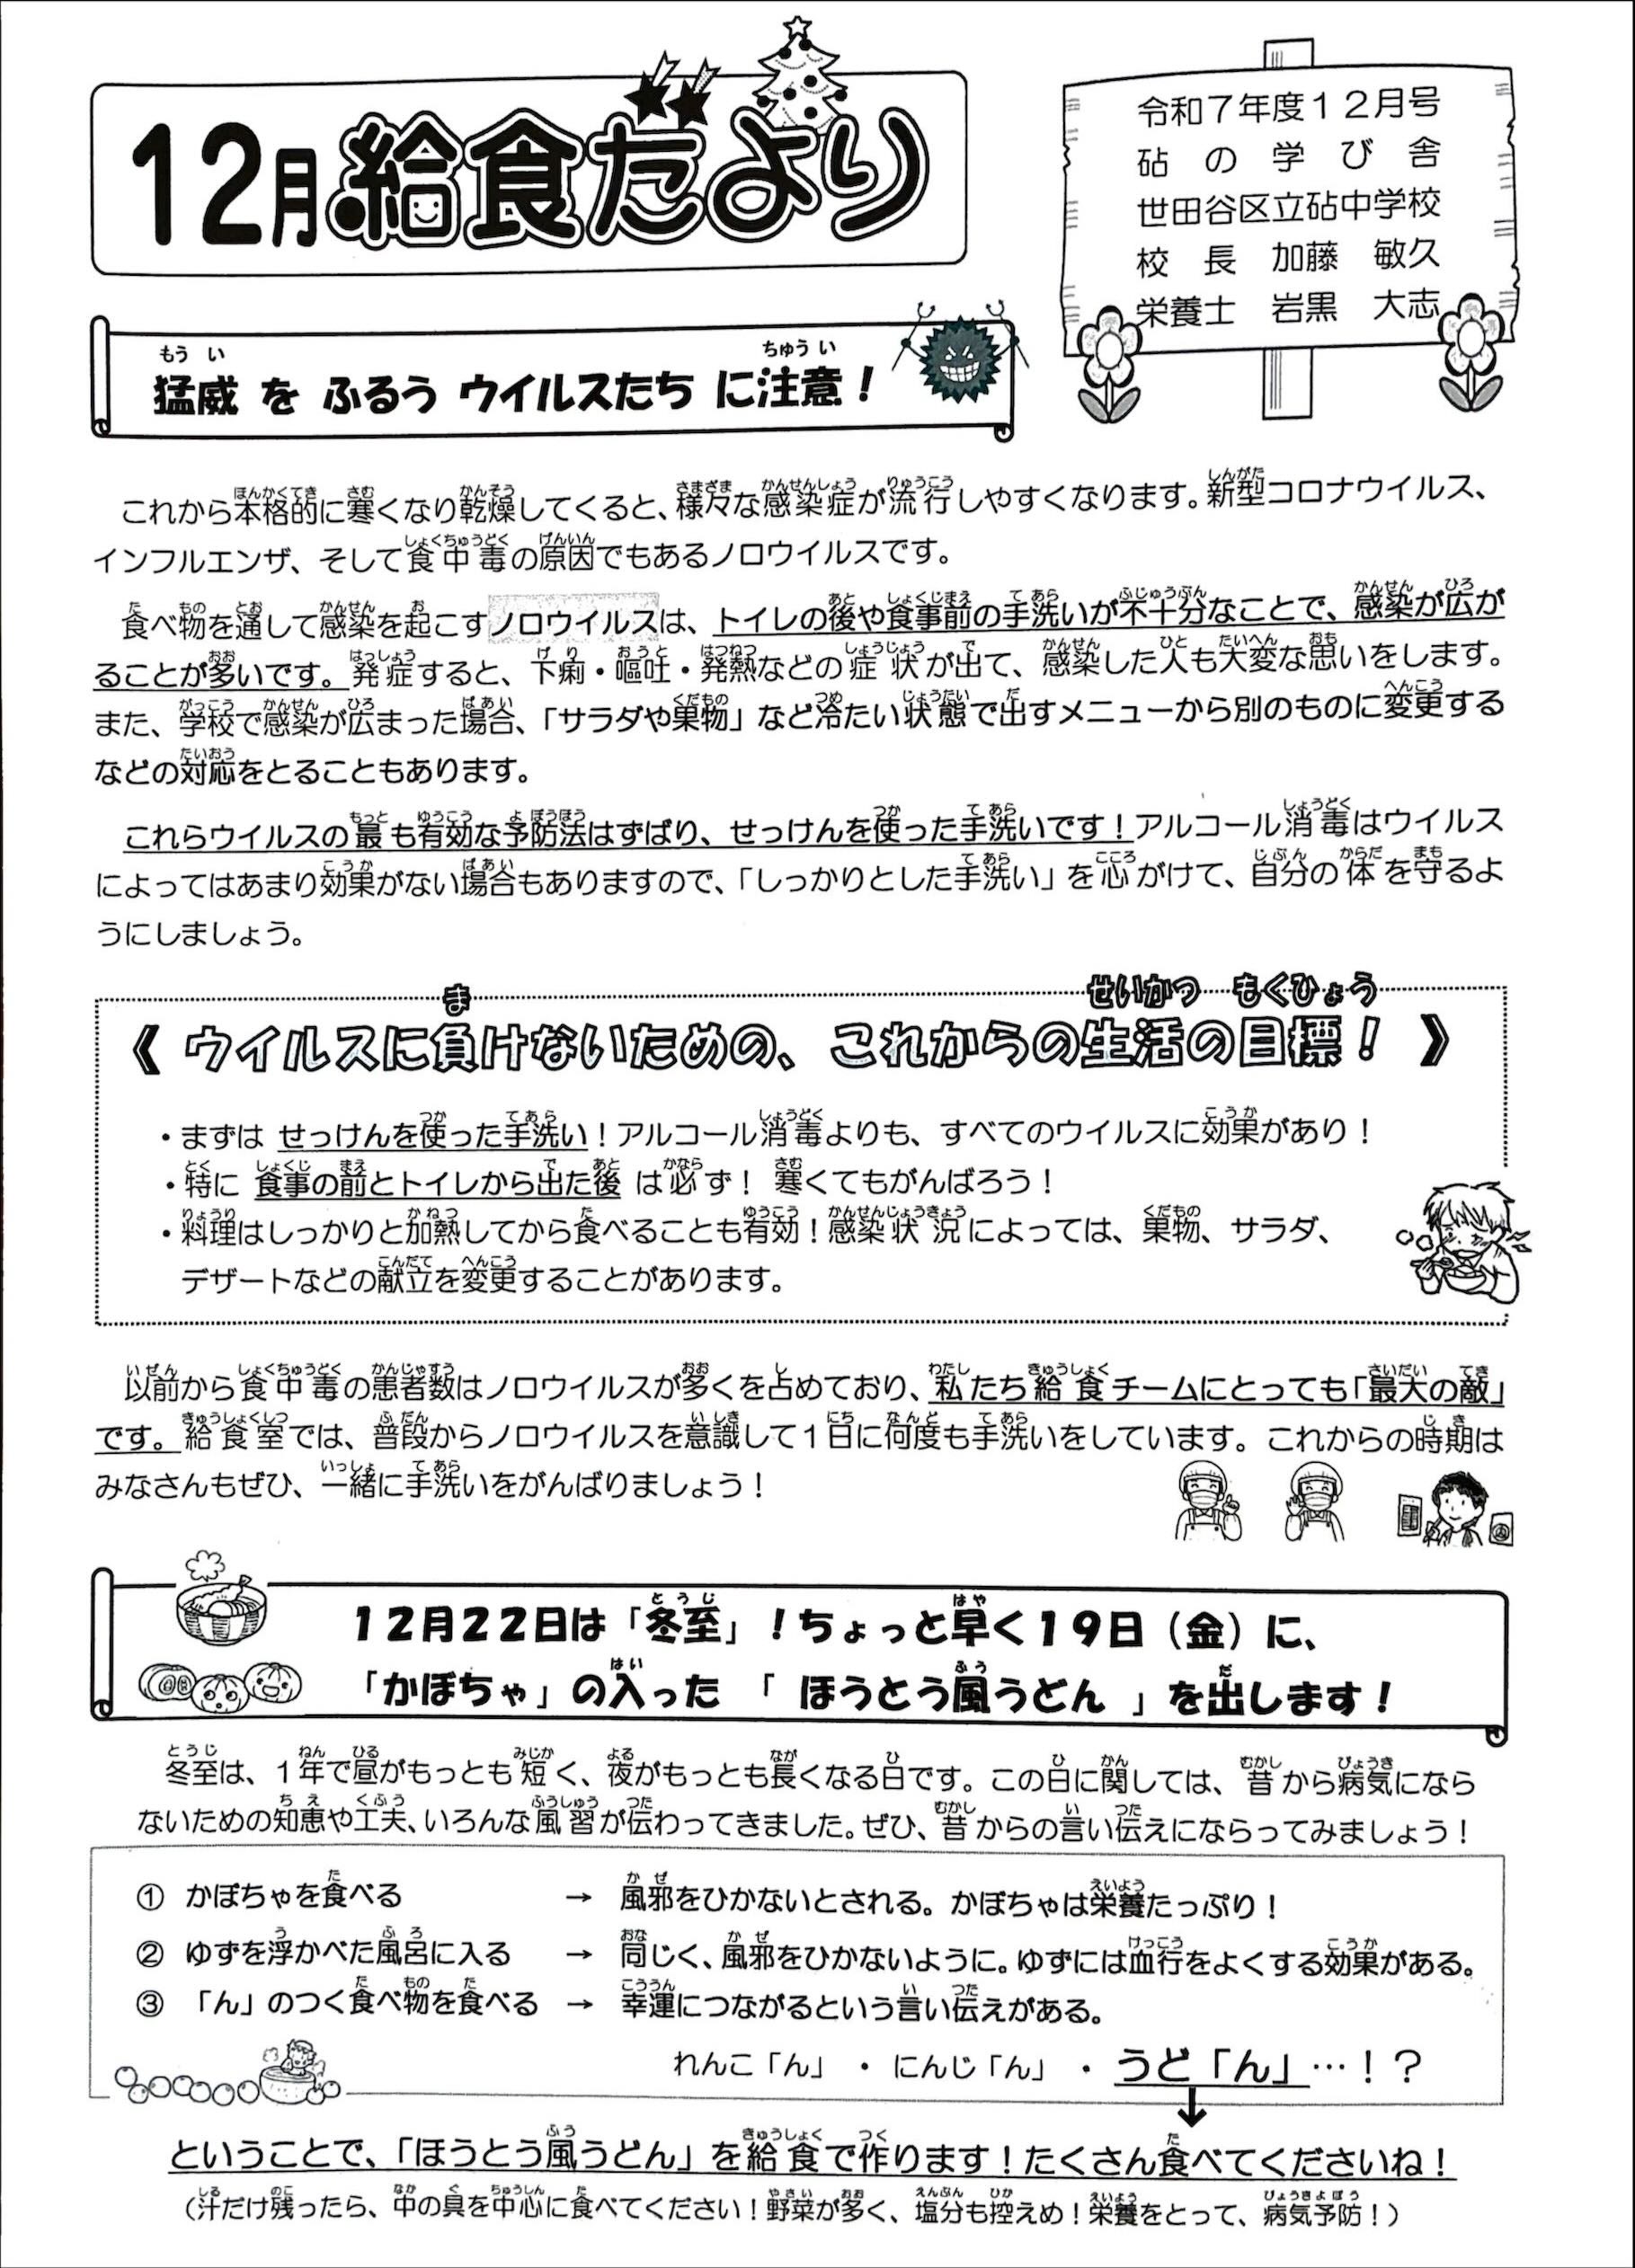 12月給食だより
令和7年度12月号
砧の学び舎
世田谷区立砧中学校
校長 加藤 敏久
栄養士 岩黒 大志
猛威 を ふるう ウイルスたち に注意！
これから本格的に寒くなり乾燥してくると、様々な感染症が流行しやすくなります。新型コロナウイルス、
インフルエンザ、そして食中毒の原因でもあるノロウイルスです。
食べ物を通して感染を起こすノロウイルスは、トイレの後や食事前の手洗いが不十分なことで、感染が広が
ることが多いです。発症すると、下痢・嘔吐・発熱などの症状が出て、感染した人も大変な思いをします。
また、学校で感染が広まった場合、「サラダや果物」など冷たい状態で出すメニューから別のものに変更する
などの対応をとることもあります。
これらウイルスの最も有効な予防法はずばり、せっけんを使った手洗いです！アルコール消毒はウイルス
によってはあまり効果がない場合もありますので、「しっかりとした手洗い」を心がけて、自分の体を守るよ
うにしましょう。
《 ウイルスに負けないための、これからの生活の目標！ 》
・まずは せっけんを使った手洗い！アルコール消毒よりも、すべてのウイルスに効果があり！
・特に 食事の前とトイレから出た後 は必ず！ 寒くてもがんばろう！
・料理はしっかりと加熱してから食べることも有効！感染状況によっては、果物、サラダ、
デザートなどの献立を変更することがあります。
以前から食中毒の患者数はノロウイルスが多くを占めており、私たち給食チームにとっても「最大の敵」
です。給食室では、普段からノロウイルスを意識して1日に何度も手洗いをしています。これからの時期は
みなさんもぜひ、一緒に手洗いをがんばりましょう！
12月22日は「冬至」！ちょっと早く19日（金）に、
「かぼちゃ」の入った 「 ほうとう風うどん 」を出します！
冬至は、1年で昼がもっとも短く、夜がもっとも長くなる日です。この日に関しては、昔から病気になら
ないための知恵や工夫、いろんな風習が伝わってきました。ぜひ、昔からの言い伝えにならってみましょう！
① かぼちゃを食べる → 風邪をひかないとされる。かぼちゃは栄養たっぷり！
② ゆずを浮かべた風呂に入る → 同じく、風邪をひかないように。ゆずには血行をよくする効果がある。
③ 「ん」のつく食べ物を食べる → 幸運につながるという言い伝えがある。
れんこ「ん」 ・ にんじ「ん」 ・ うど「ん」…！？
↓
ということで、「ほうとう風うどん」を給食で作ります！たくさん食べてくださいね！
（汁だけ残ったら、中の具を中心に食べてください！野菜が多く、塩分も控えめ！栄養をとって、病気予防！）